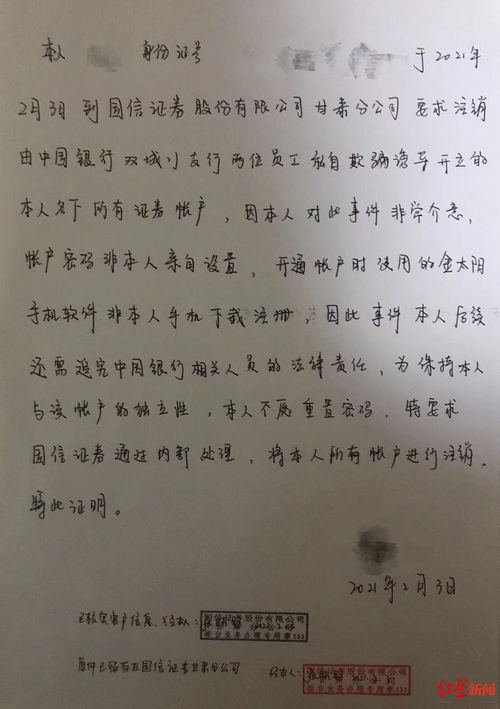 本人 身份证号 于2021年
2月3日到国信证券股份有限公司甘肃分公司要求注销
由中国银行双城门支行两位员工私自欺骗诱导开立的
本人名下所有证券帐户，因本人对此事件非常介意，
帐户密码非本人亲自设置，开通帐户时使用的金太阳
手机软件非本人手机下载注册，因此事件本人后续
还需追究中国银行相关人员的法律责任，为保持本人
与该帐户的独立性，本人不愿重置密码，特要求
国信证券通过内部处理，将本人所有帐户进行注销，
特此证明。
2021年2月3日
已核实客户信息，经办人：
国信证券股份有限公司
柜台业务办理专用章(2)
原件已留存在国信证券甘肃分公司 经办人：
国信证券股份有限公司
柜台业务办理专用章(2)
红星新闻